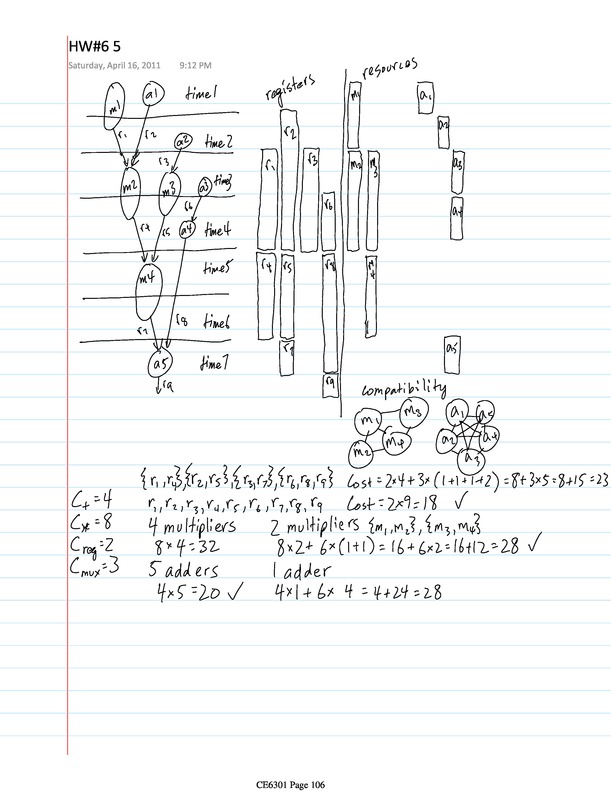 HW#6 5
Saturday, April 16, 2011 9:12 PM
registers
resources
m1
a1
time1
r1
r2
a2
time2
r3
m2
m3
a3
time3
r6
r4
r5
a4
time4
m4
time5
r7
r8
time6
a5
time7
r9
r1
r2
r3
r6
r4
r5
r8
r7
r9
m1
m2
m3
m4
a1
a2
a3
a4
a5
compatibility
m1
m3
m2
m4
a1
a5
a2
a4
a3
{r1,r4},{r2,r5},{r3,r7},{r6,r8,r9} Cost=2×4+3×(1+1+1+2)=8+3×5=8+15=23
C+=4 r1,r2,r3,r4,r5,r6,r7,r8,r9 Cost=2×9=18 ✓
C*=8 4 multipliers 2 multipliers {m1,m2},{m3,m4}
Creg=2 8×4=32 8×2+6×(1+1)=16+6×2=16+12=28 ✓
Cmux=3 5 adders 1 adder
4×5=20 ✓ 4×1+6×4=4+24=28
CE6301 Page 106